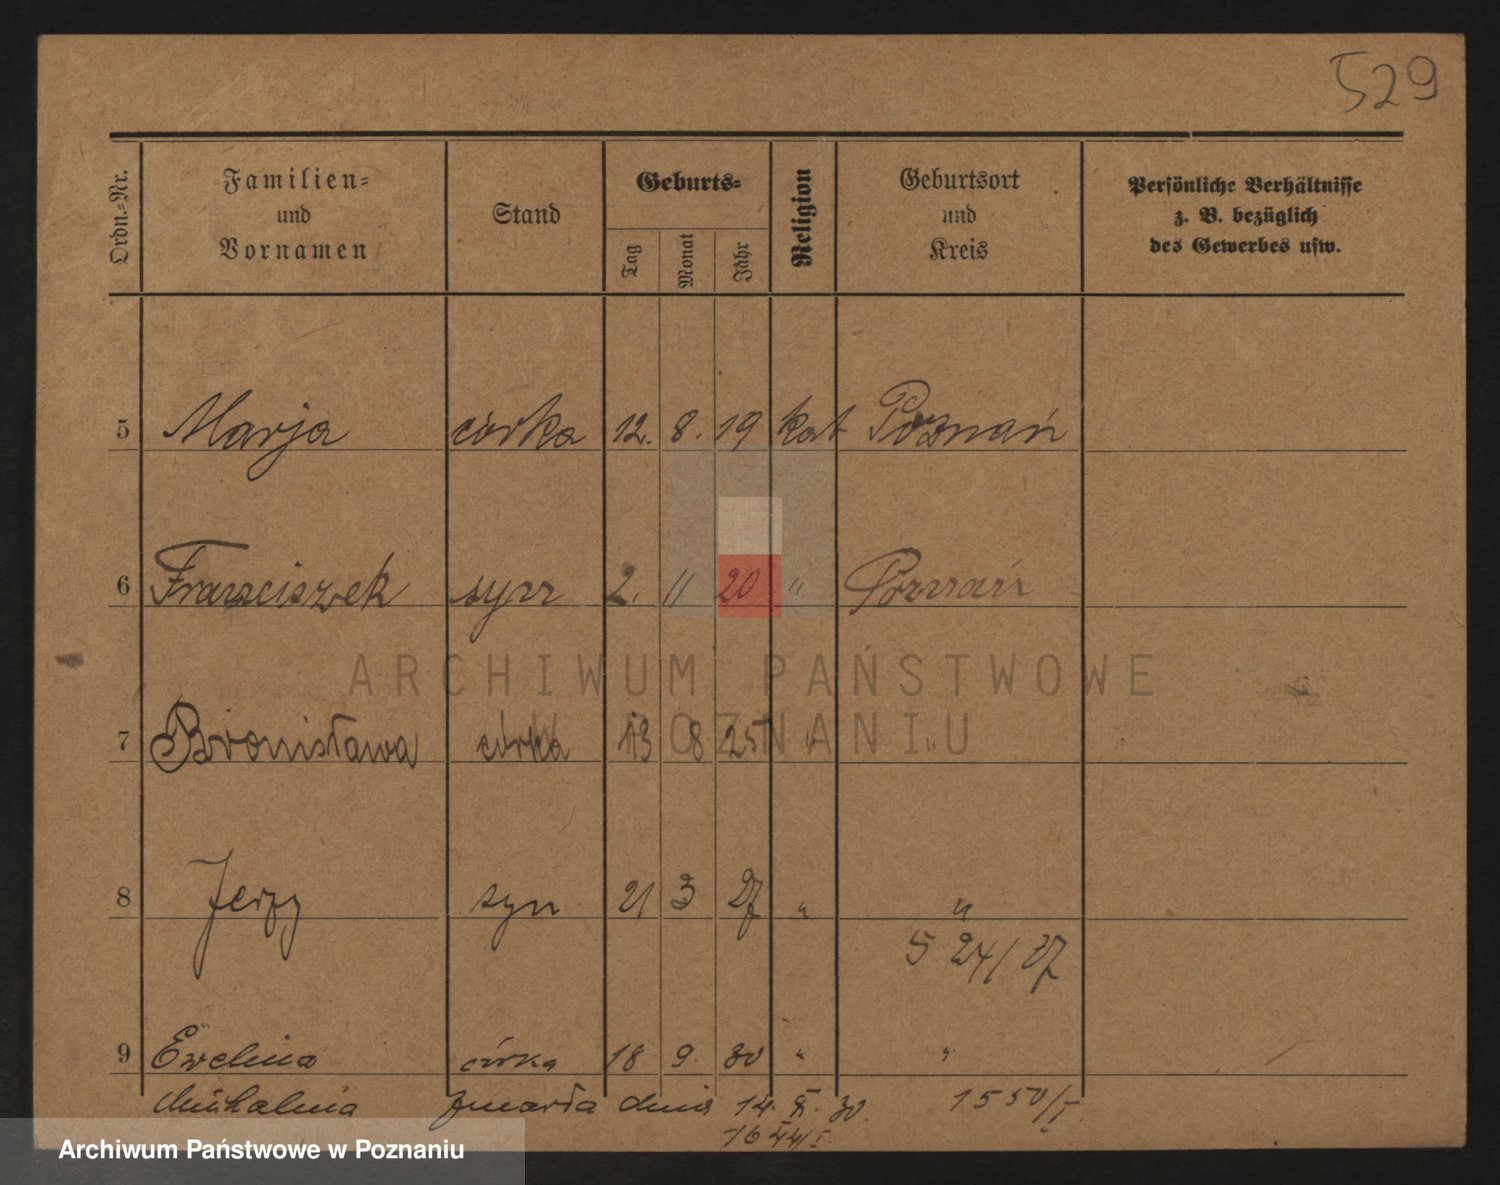 529
Ordn.=Nr.
Familien=
und
Vornamen
Stand
Geburts=
Tag
Monat
Jahr
Religion
Geburtsort
und
Kreis
Persönliche Verhältnisse
z. B. bezüglich
des Gewerbes usw.
5 Marja córka 12. 8. 19 kat Poznań
6 Franciszek syn 2. 11 20. " Poznań
ARCHIWUM PAŃSTWOWE
W POZNANIU
7 Bronisława córka 13 8 25 " "
8 Jerzy syn 21 3 27 " "
5 24/27
9 Ewelina córka 18 9. 30 " "
Michalina zmarła dnia 14. X. 30. 1550/I.
1644/I
Archiwum Państwowe w Poznaniu